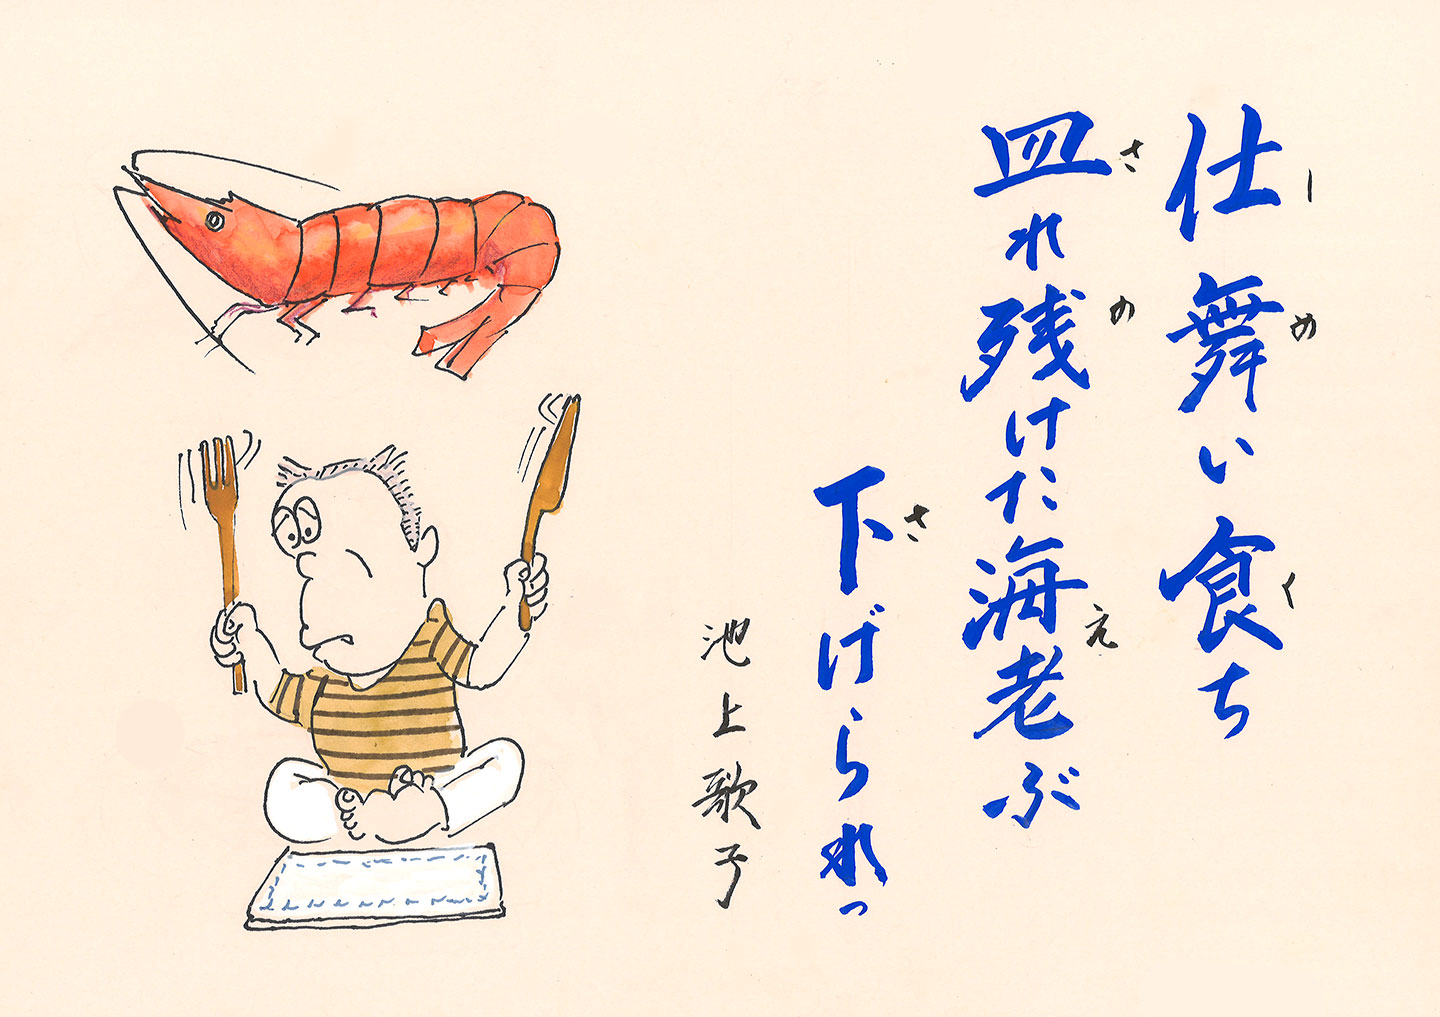 仕舞い食ち
しめく
皿れ残けた海老ぶ
さのえ
下げられっ
さ
池上歌子